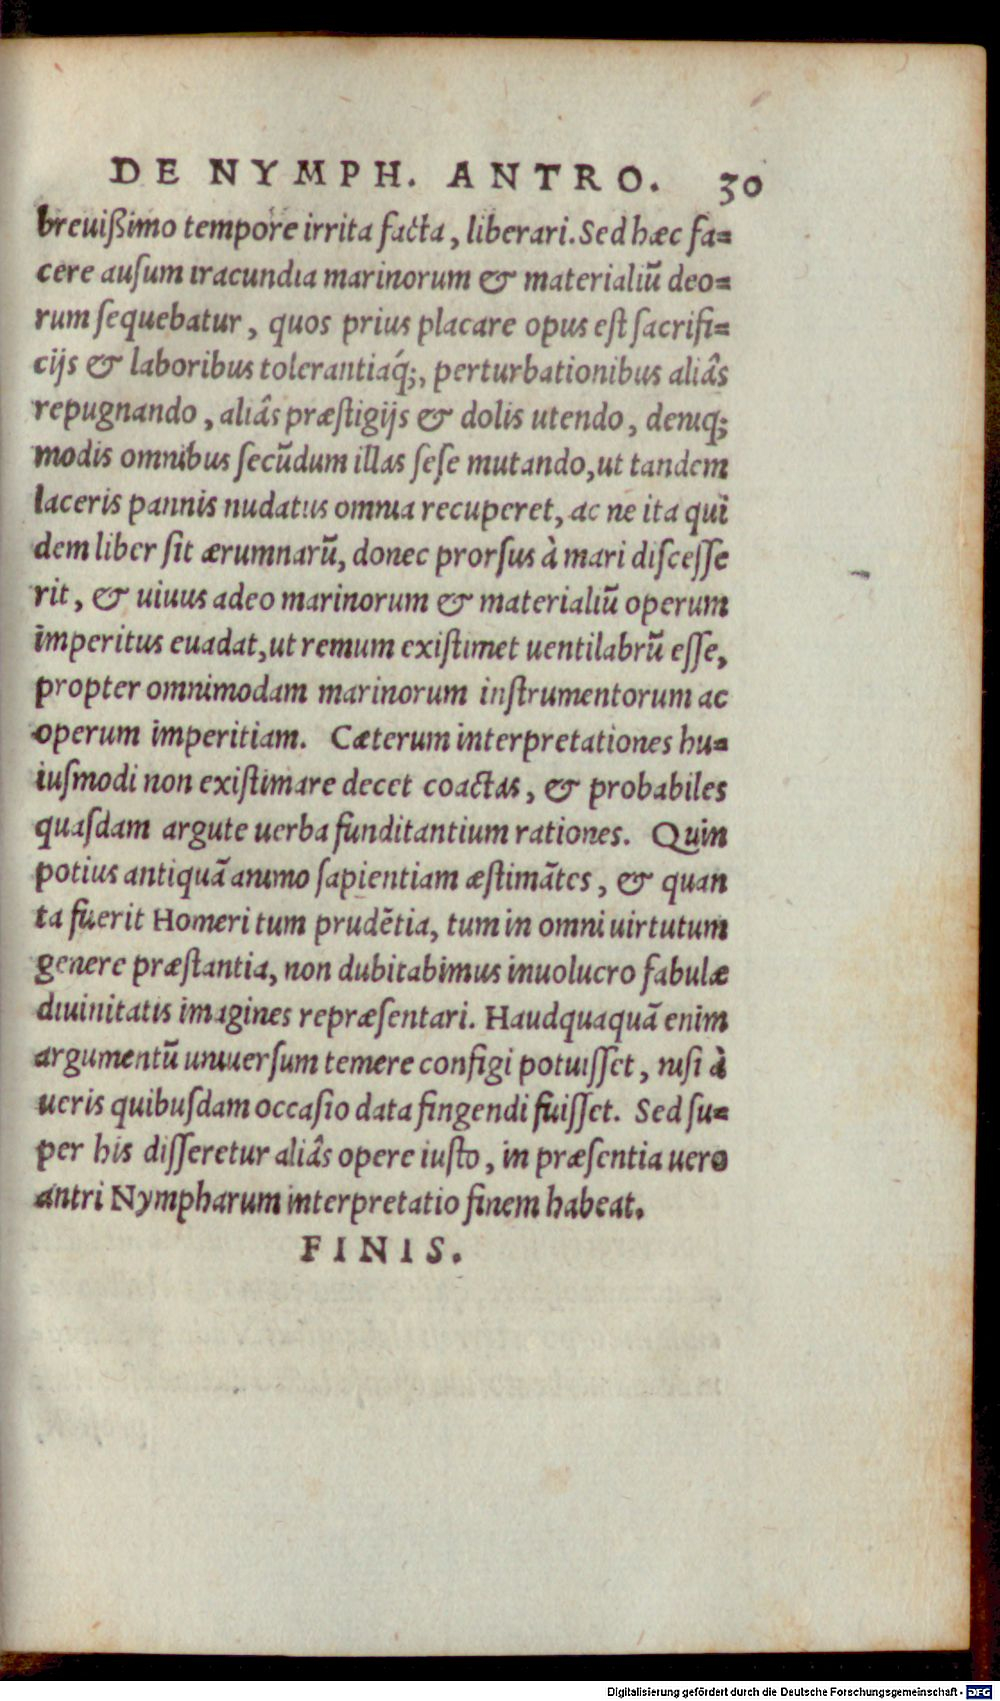 DE NYMPH. ANTRO. 30
breuißimo tempore irrita facta, liberari. Sed hæc fa=
cere auſum iracundia marinorum & materialiũ deo=
rum ſequebatur, quos prius placare opus eſt ſacrifi=
cijs & laboribus tolerantiaq́;, perturbationibus aliâs
repugnando, aliâs præſtigijs & dolis utendo, deniq;
modis omnibus ſecũdum illas ſeſe mutando, ut tandem
laceris pannis nudatus omnia recuperet, ac ne ita qui
dem liber ſit ærumnarũ, donec prorſus à mari diſceſſe
rit, & uiuus adeo marinorum & materialiũ operum
imperitus euadat, ut remum exiſtimet uentilabrũ eſſe,
propter omnimodam marinorum inſtrumentorum ac
operum imperitiam. Cæterum interpretationes hu=
iuſmodi non exiſtimare decet coactas, & probabiles
quaſdam argute uerba funditantium rationes. Quin
potius antiquã animo ſapientiam æſtimãtes, & quan
ta fuerit Homeri tum prudẽtia, tum in omni uirtutum
genere præſtantia, non dubitabimus inuolucro fabulæ
diuinitatis imagines repræſentari. Haudquaquã enim
argumentũ uniuerſum temere configi potuiſſet, niſi à
ueris quibuſdam occaſio data fingendi fuiſſet. Sed ſu=
per his diſſeretur aliâs opere iuſto, in præſentia uero
antri Nympharum interpretatio finem habeat.
FINIS.
Digitalisierung gefördert durch die Deutsche Forschungsgemeinschaft - DFG